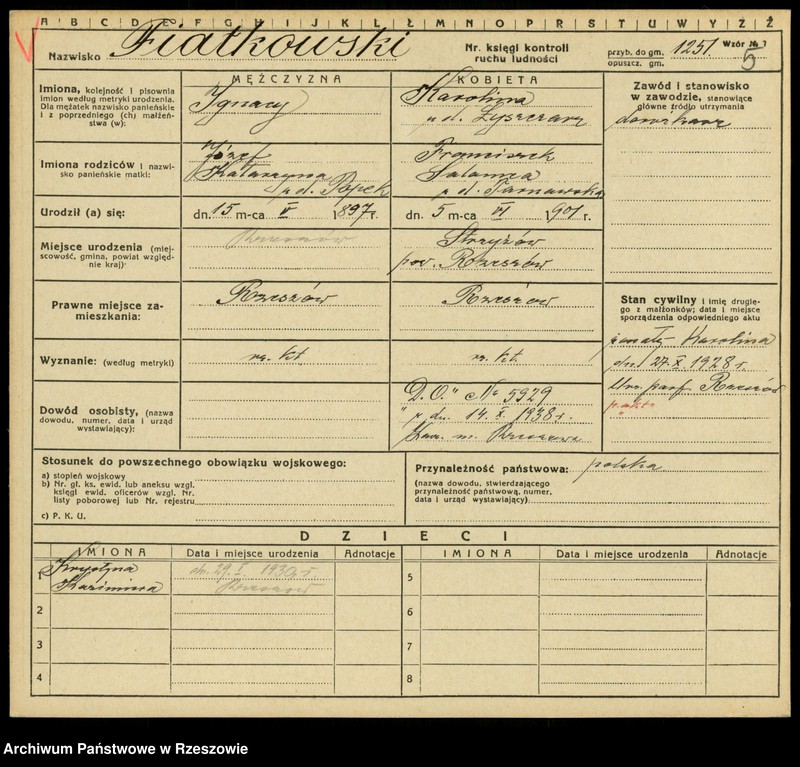 A B C D E F G H I J K L Ł M N O P R S T U W Y Z Ż
Nazwisko Fiałkowski
Nr. księgi kontroli ruchu ludności
przyb. do gm. 1251 Wzór № 1
opuszcz. gm. 5
MĘŻCZYZNA KOBIETA
Imiona, kolejność i pisownia imion według metryki urodzenia. Dla mężatek nazwisko panieńskie i z poprzedniego (ch) małżeństwa (w):
Ignacy
Karolina
p d.
Zawód i stanowisko w zawodzie, stanowiące główne źródło utrzymania
dorożkarz
Imiona rodziców i nazwisko panieńskie matki:
Józef
Katarzyna
p d. Popek
Franciszek
Salomea
p d. Tarnawska
Urodził (a) się:
dn. 15 m-ca V 1897 r.
dn. 5 m-ca VI 1901 r.
Miejsce urodzenia (miejscowość, gmina, powiat względnie kraj)
Rzeszów
Strzyżów
pow. Rzeszów
Prawne miejsce zamieszkania:
Rzeszów
Rzeszów
Stan cywilny i imię drugiego z małżonków; data i miejsce sporządzenia odpowiedniego aktu
żonaty - Karolina
dn. 27.X 1928 r.
Urz. paraf. Rzeszów
Wyznanie: (według metryki)
rz. kt.
rz. kt.
Dowód osobisty, (nazwa dowodu, numer, data i urząd wystawiający):
"D.O." No 5929
p. dn. 14.X. 1938 r.
Zarz. m. Rzeszowa
Stosunek do powszechnego obowiązku wojskowego:
a) stopień wojskowy
b) Nr. gł. ks. ewid. lub aneksu wzgl. księgi ewid. oficerów wzgl. Nr. listy poborowej lub Nr. rejestru
c) P. K. U.
Przynależność państwowa: polska
(nazwa dowodu, stwierdzającego przynależność państwową, numer, data i urząd wystawiający)
DZIECI
IMIONA Data i miejsce urodzenia Adnotacje IMIONA Data i miejsce urodzenia Adnotacje
1 Krystyna
Kazimiera
dn. 29.X. 1930 r
Rzeszów
5
2 6
3 7
4 8
Archiwum Państwowe w Rzeszowie